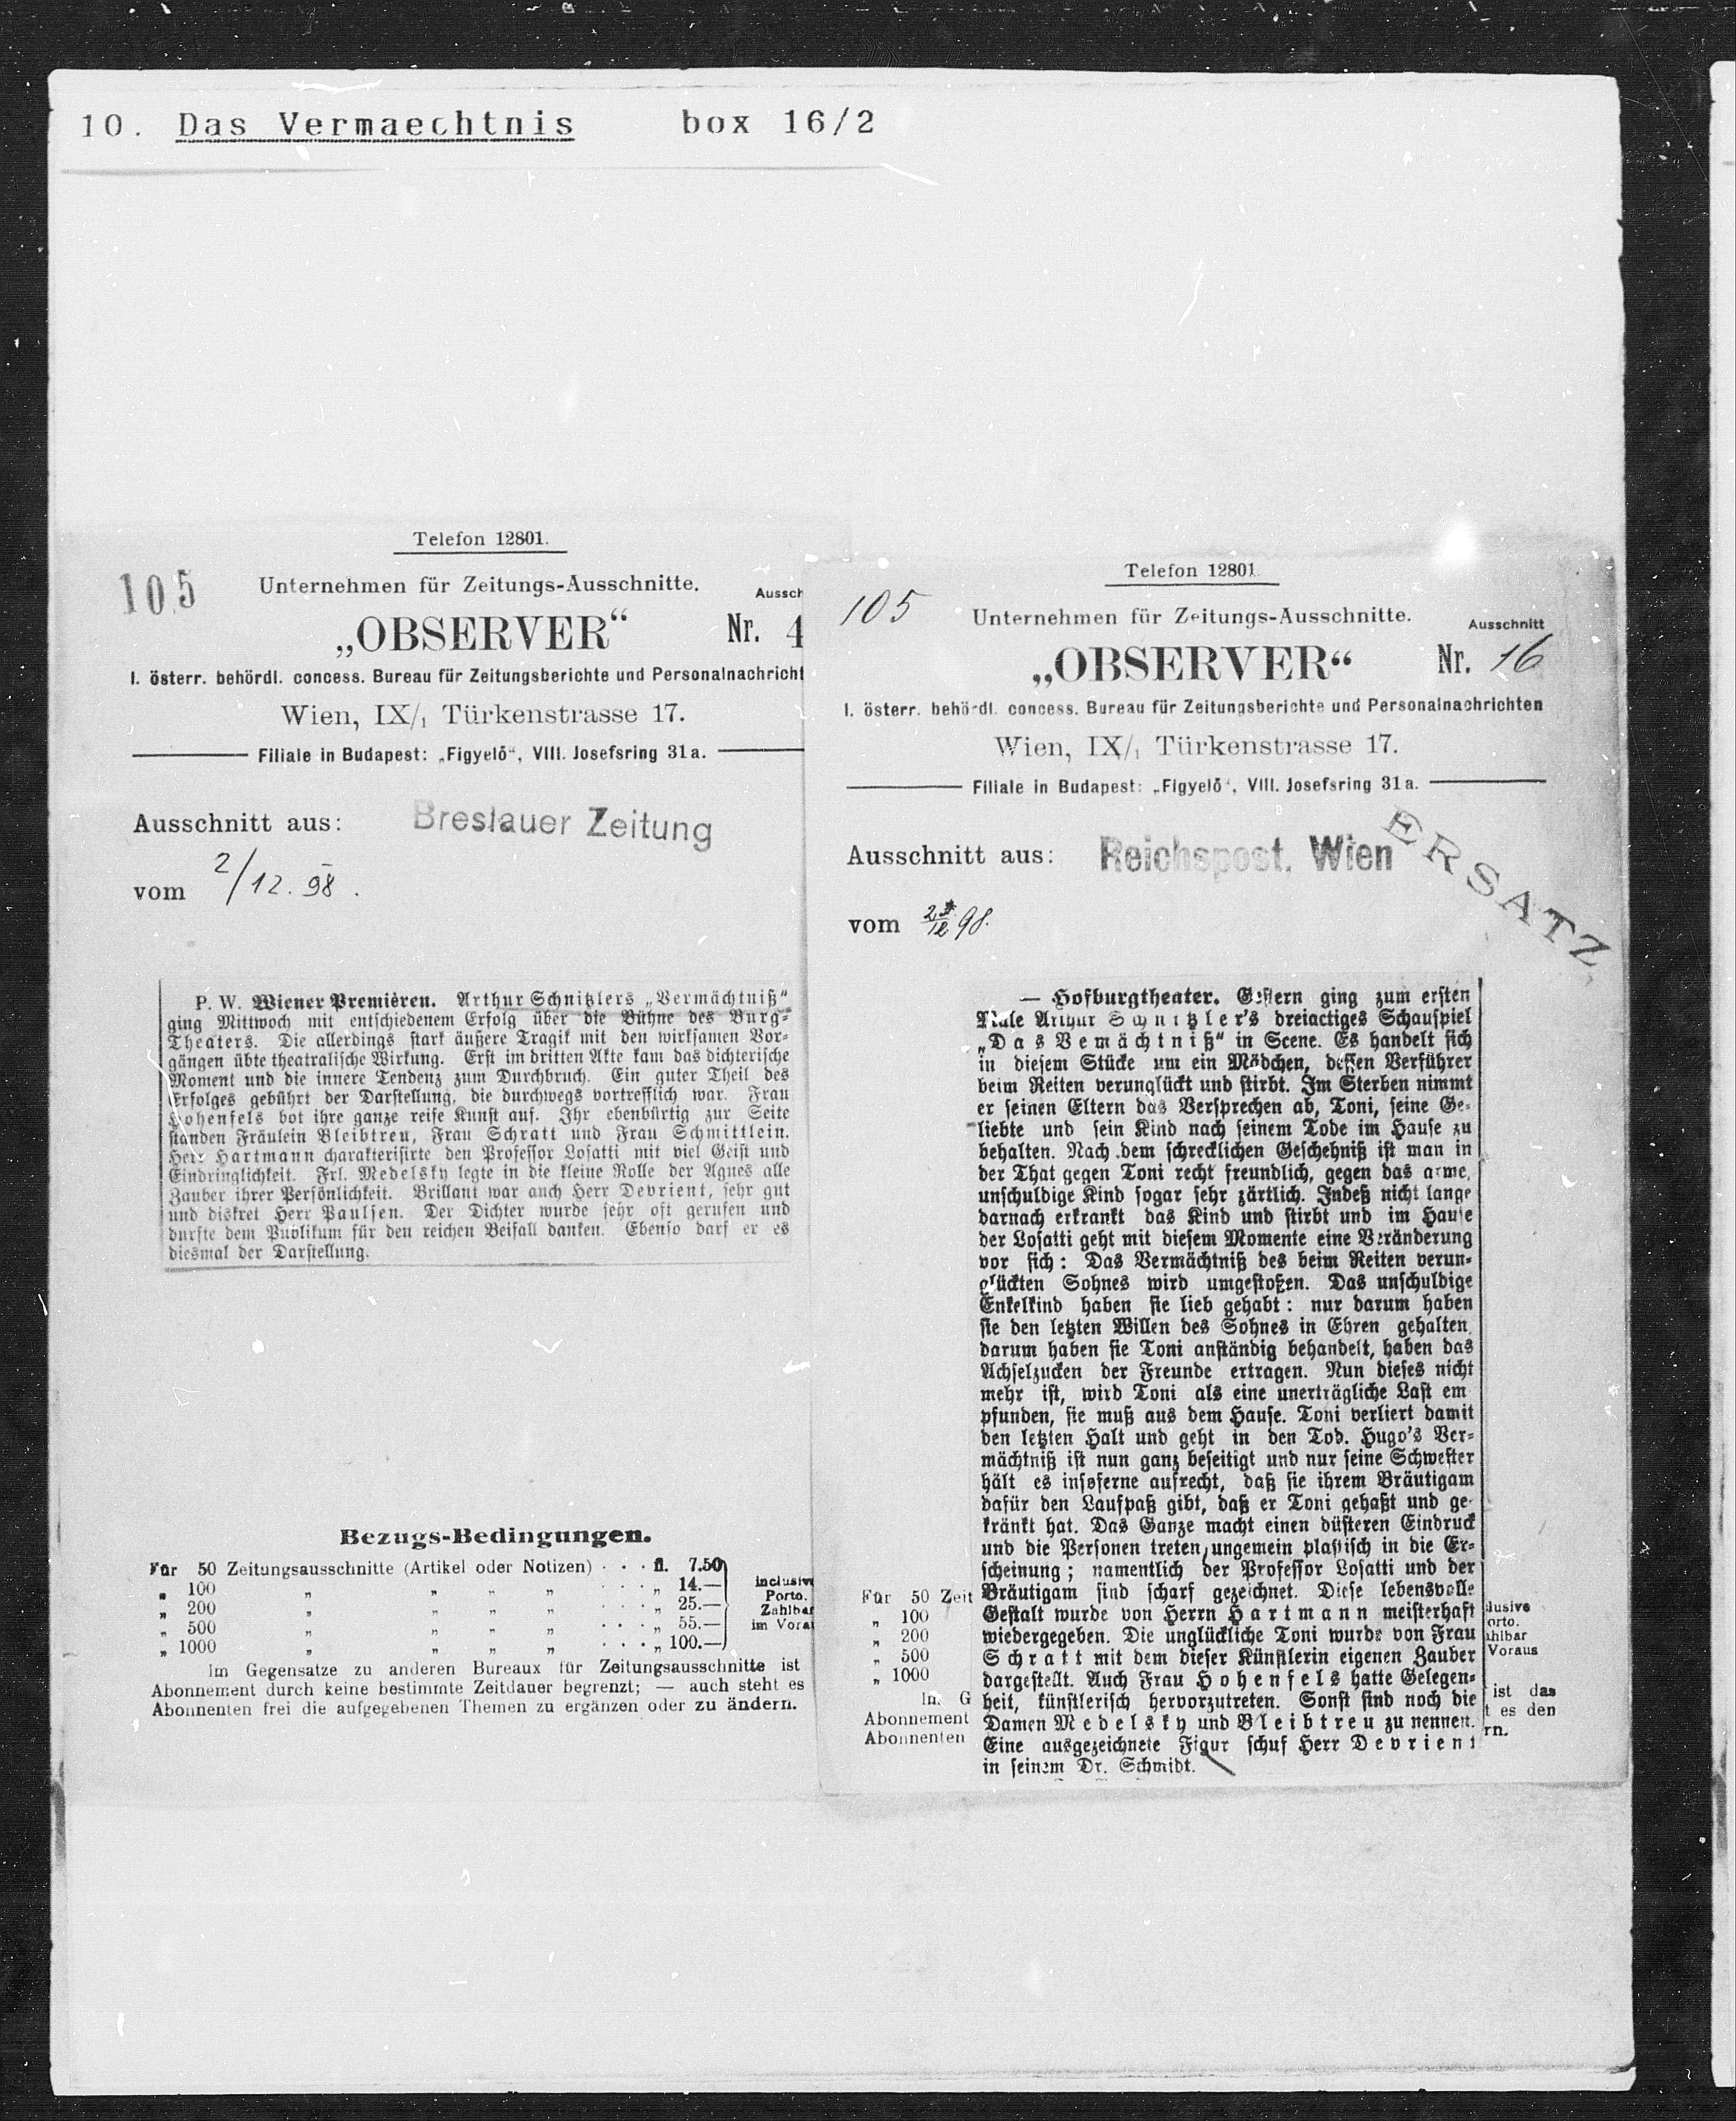 10. Das Vermaechtnis box 16/2
Telefon 12801.
105
Unternehmen für Zeitungs-Ausschnitte.
Aussch
„OBSERVER“
Nr. 4
I. österr. behördl. concess. Bureau für Zeitungsberichte und Personalnachricht
Wien, IX/1 Türkenstrasse 17.
Filiale in Budapest: „Figyelő“, VIII. Josefsring 31a.
Ausschnitt aus: Breslauer Zeitung
vom 2/12. 98.
P. W. Wiener Premièren. Arthur Schnitzlers „Vermächtniß“
ging Mittwoch mit entschiedenem Erfolg über die Bühne des Burg-
Theaters. Die allerdings stark äußere Tragik mit den wirksamen Vor-
gängen übte theatralische Wirkung. Erst im dritten Akte kam das dichterische
Moment und die innere Tendenz zum Durchbruch. Ein guter Theil des
Erfolges gebührt der Darstellung, die durchwegs vortrefflich war. Frau
Hohenfels bot ihre ganze reife Kunst auf. Ihr ebenbürtig zur Seite
standen Fräulein Bleibtreu, Frau Schratt und Frau Schmittlein.
Herr Hartmann charakterisirte den Professor Losatti mit viel Geist und
Eindringlichkeit. Frl. Medelsky legte in die kleine Rolle der Agnes alle
Zauber ihrer Persönlichkeit. Brillant war auch Herr Devrient, sehr gut
und diskret Herr Paulsen. Der Dichter wurde sehr oft gerufen und
durfte dem Publikum für den reichen Beifall danken. Ebenso darf er es
diesmal der Darstellung.
Bezugs-Bedingungen.
Für 50 Zeitungsausschnitte (Artikel oder Notizen) · · · fl. 7.50
„ 100 „ „ „ „ · · · „ 14.— inclusive
„ 200 „ „ „ „ · · · „ 25.— Porto.
„ 500 „ „ „ „ · · · „ 55.— Zahlbar
„ 1000 „ „ „ „ · · · „ 100.— im Vorau
Im Gegensatze zu anderen Bureaux für Zeitungsausschnitte ist
Abonnement durch keine bestimmte Zeitdauer begrenzt; — auch steht es
Abonnenten frei die aufgegebenen Themen zu ergänzen oder zu ändern.
Telefon 12801.
105
Unternehmen für Zeitungs-Ausschnitte.
Ausschnitt
„OBSERVER“
Nr. 16
I. österr. behördl. concess. Bureau für Zeitungsberichte und Personalnachrichten
Wien, IX/1 Türkenstrasse 17.
Filiale in Budapest: „Figyelő“, VIII. Josefsring 31a.
ERSATZ
Ausschnitt aus: Reichspost, Wien
vom 98.
— Hofburgtheater. Gestern ging zum ersten
Male Arthur Schnitzler's dreiactiges Schauspiel
„Das Vemächtniß“ in Scene. Es handelt sich
in diesem Stücke um ein Mädchen, dessen Verführer
beim Reiten verunglückt und stirbt. Im Sterben nimmt
er seinen Eltern das Versprechen ab, Toni, seine Ge-
liebte und sein Kind nach seinem Tode im Hause zu
behalten. Nach dem schrecklichen Geschehniß ist man in
der That gegen Toni recht freundlich, gegen das arme,
unschuldige Kind sogar sehr zärtlich. Indeß nicht lange
darnach erkrankt das Kind und stirbt und im Hause
der Losatti geht mit diesem Momente eine Veränderung
vor sich: Das Vermächtniß des beim Reiten verun-
glückten Sohnes wird umgestoßen. Das unschuldige
Enkelkind haben sie lieb gehabt: nur darum haben
sie den letzten Willen des Sohnes in Ehren gehalten,
darum haben sie Toni anständig behandelt, haben das
Achselzucken der Freunde ertragen. Nun dieses nicht
mehr ist, wird Toni als eine unerträgliche Last em
pfunden, sie muß aus dem Hause. Toni verliert damit
den letzten Halt und geht in den Tod. Hugo's Ver-
mächtniß ist nun ganz beseitigt und nur seine Schwester
hält es insoferne aufrecht, daß sie ihrem Bräutigam
dafür den Laufpaß gibt, daß er Toni gehaßt und ge-
kränkt hat. Das Ganze macht einen düsteren Eindruck
und die Personen treten ungemein plastisch in die Er-
scheinung; namentlich der Professor Losatti und der
Bräutigam sind scharf gezeichnet. Diese lebensvolle
Gestalt wurde von Herrn Hartmann meisterhaft
wiedergegeben. Die unglückliche Toni wurde von Frau
Schratt mit dem dieser Künstlerin eigenen Zauber
dargestellt. Auch Frau Hohenfels hatte Gelegen-
heit, künstlerisch hervorzutreten. Sonst sind noch die
Damen Medelsky und Bleibtreu zu nennen.
Eine ausgezeichnete Figur schuf Herr Devrient
in seinem Dr. Schmidt.
Für 50 Zeit
„ 100 lusive
„ 200 orto.
„ 500 ahlbar
„ 1000 Voraus
Im G ist das
Abonnement t es den
Abonnenten rn.